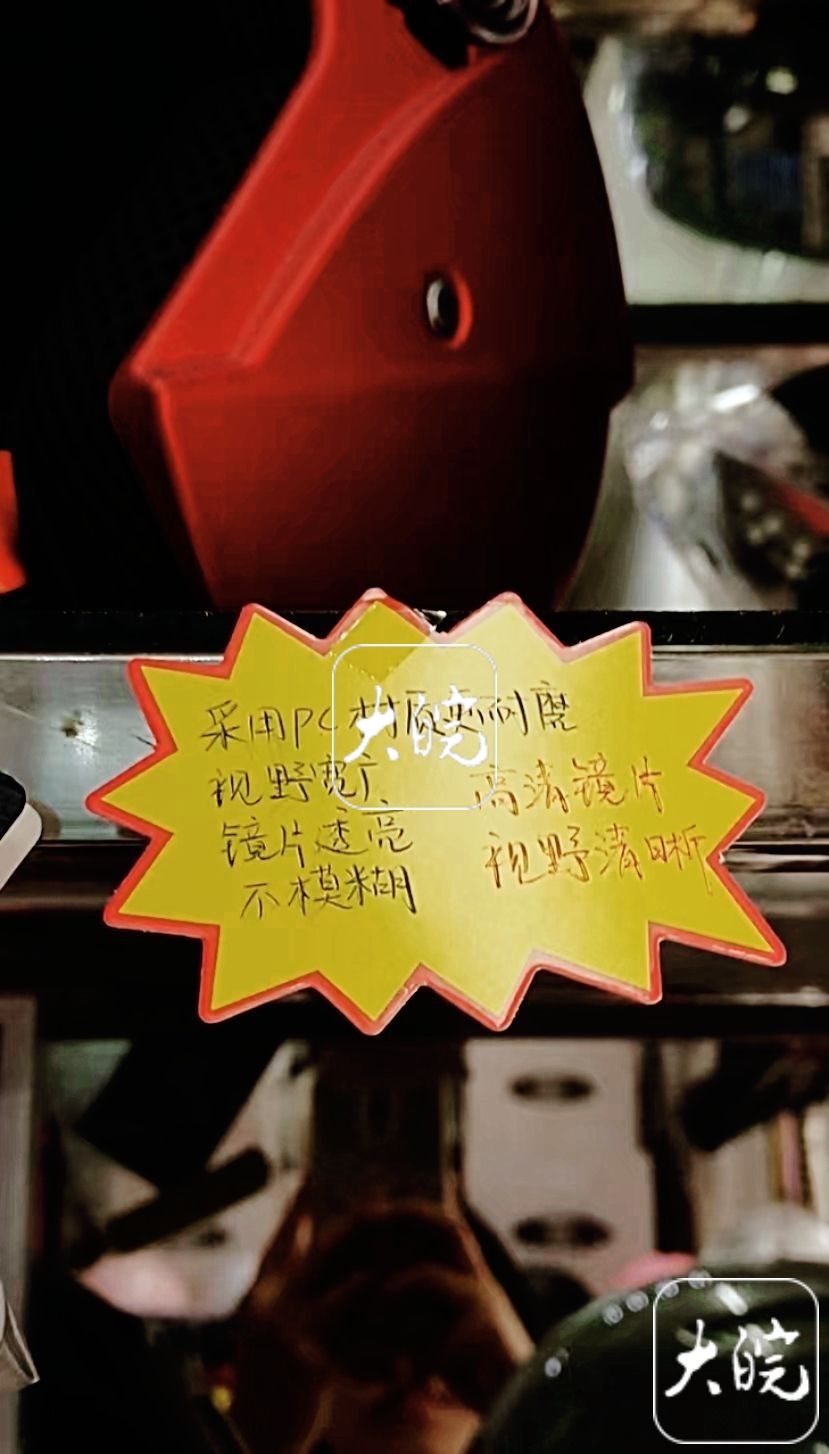 采用PC材质更耐磨
视野宽广
镜片透亮
不模糊
高清镜片
视野清晰
大皖
大皖